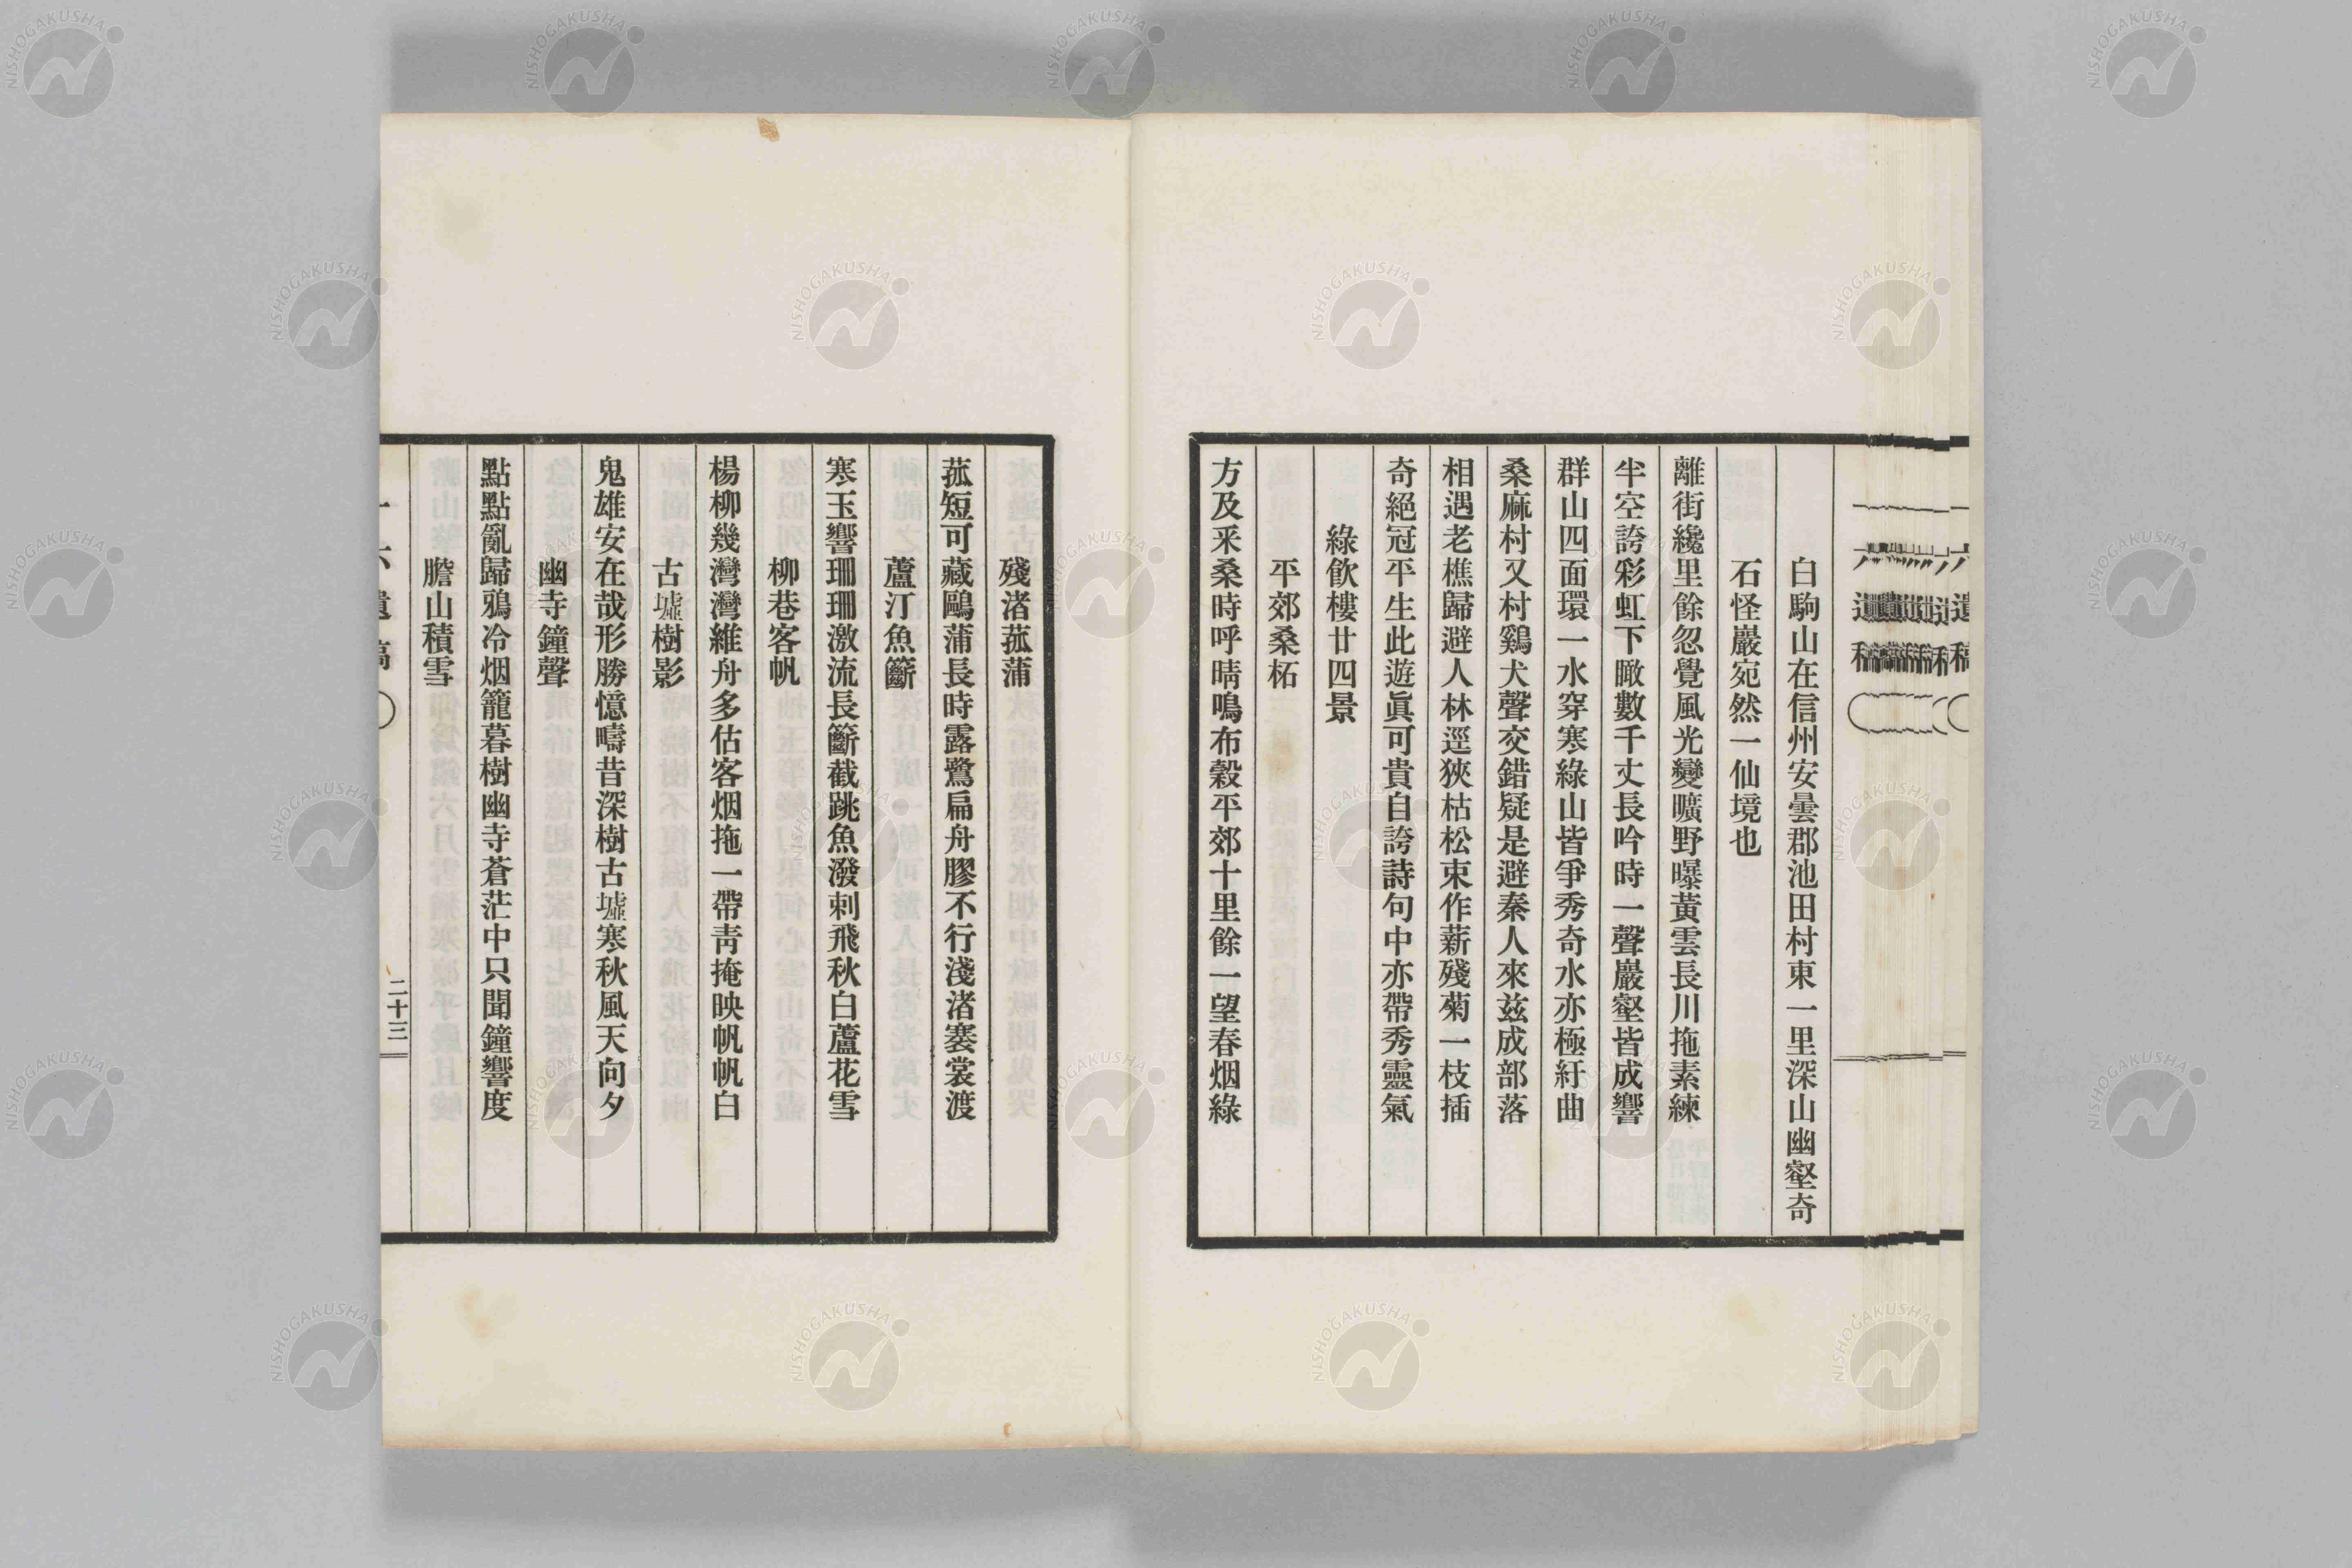 白駒山在信州安曇郡池田村東一里深山幽壑奇
石怪巖宛然一仙境也
離街纔里餘忽覺風光變曠野曝黃雲長川拖素練
半空誇彩虹下瞰數千丈長吟時一聲巖壑皆成響
群山四面環一水穿寒綠山皆爭秀奇水亦極紆曲
桑麻村又村鷄犬聲交錯疑是避秦人來茲成部落
相遇老樵歸避人林逕狹枯松束作薪殘菊一枝插
奇絕冠平生此遊眞可貴自誇詩句中亦帶秀靈氣
綠飮樓廿四景
平郊桑柘
方及采桑時呼晴鳴布穀平郊十里餘一望春烟綠
殘渚菰蒲
菰短可藏鷗蒲長時露鷺扁舟膠不行淺渚褰裳渡
蘆汀魚籪
寒玉響珊珊激流長籪截跳魚潑刺飛秋白蘆花雪
柳巷客帆
楊柳幾灣灣維舟多估客烟拖一帶靑掩映帆帆白
古墟樹影
鬼雄安在哉形勝憶疇昔深樹古墟寒秋風天向夕
幽寺鐘聲
點點亂歸鴉冷烟籠暮樹幽寺蒼茫中只聞鐘響度
膽山積雪
一六遺稿
二十三
一六遺稿
NISHOGAKUSHA